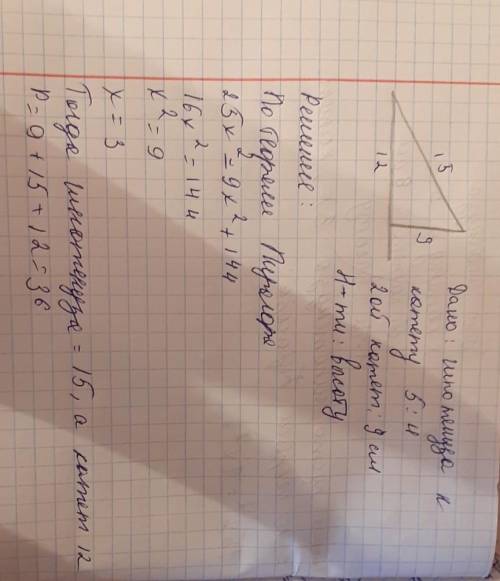 Дано: гипотенуза к
катету 5:4
2ой катет: 9 см
Н-ти: высоту
15
12
9
Решение:
По теореме Пифагора
25x² = 9x² + 144
16x² = 144
x² = 9
x = 3
Тогда гипотенуза = 15, а катет 12
P = 9 + 15 + 12 = 36